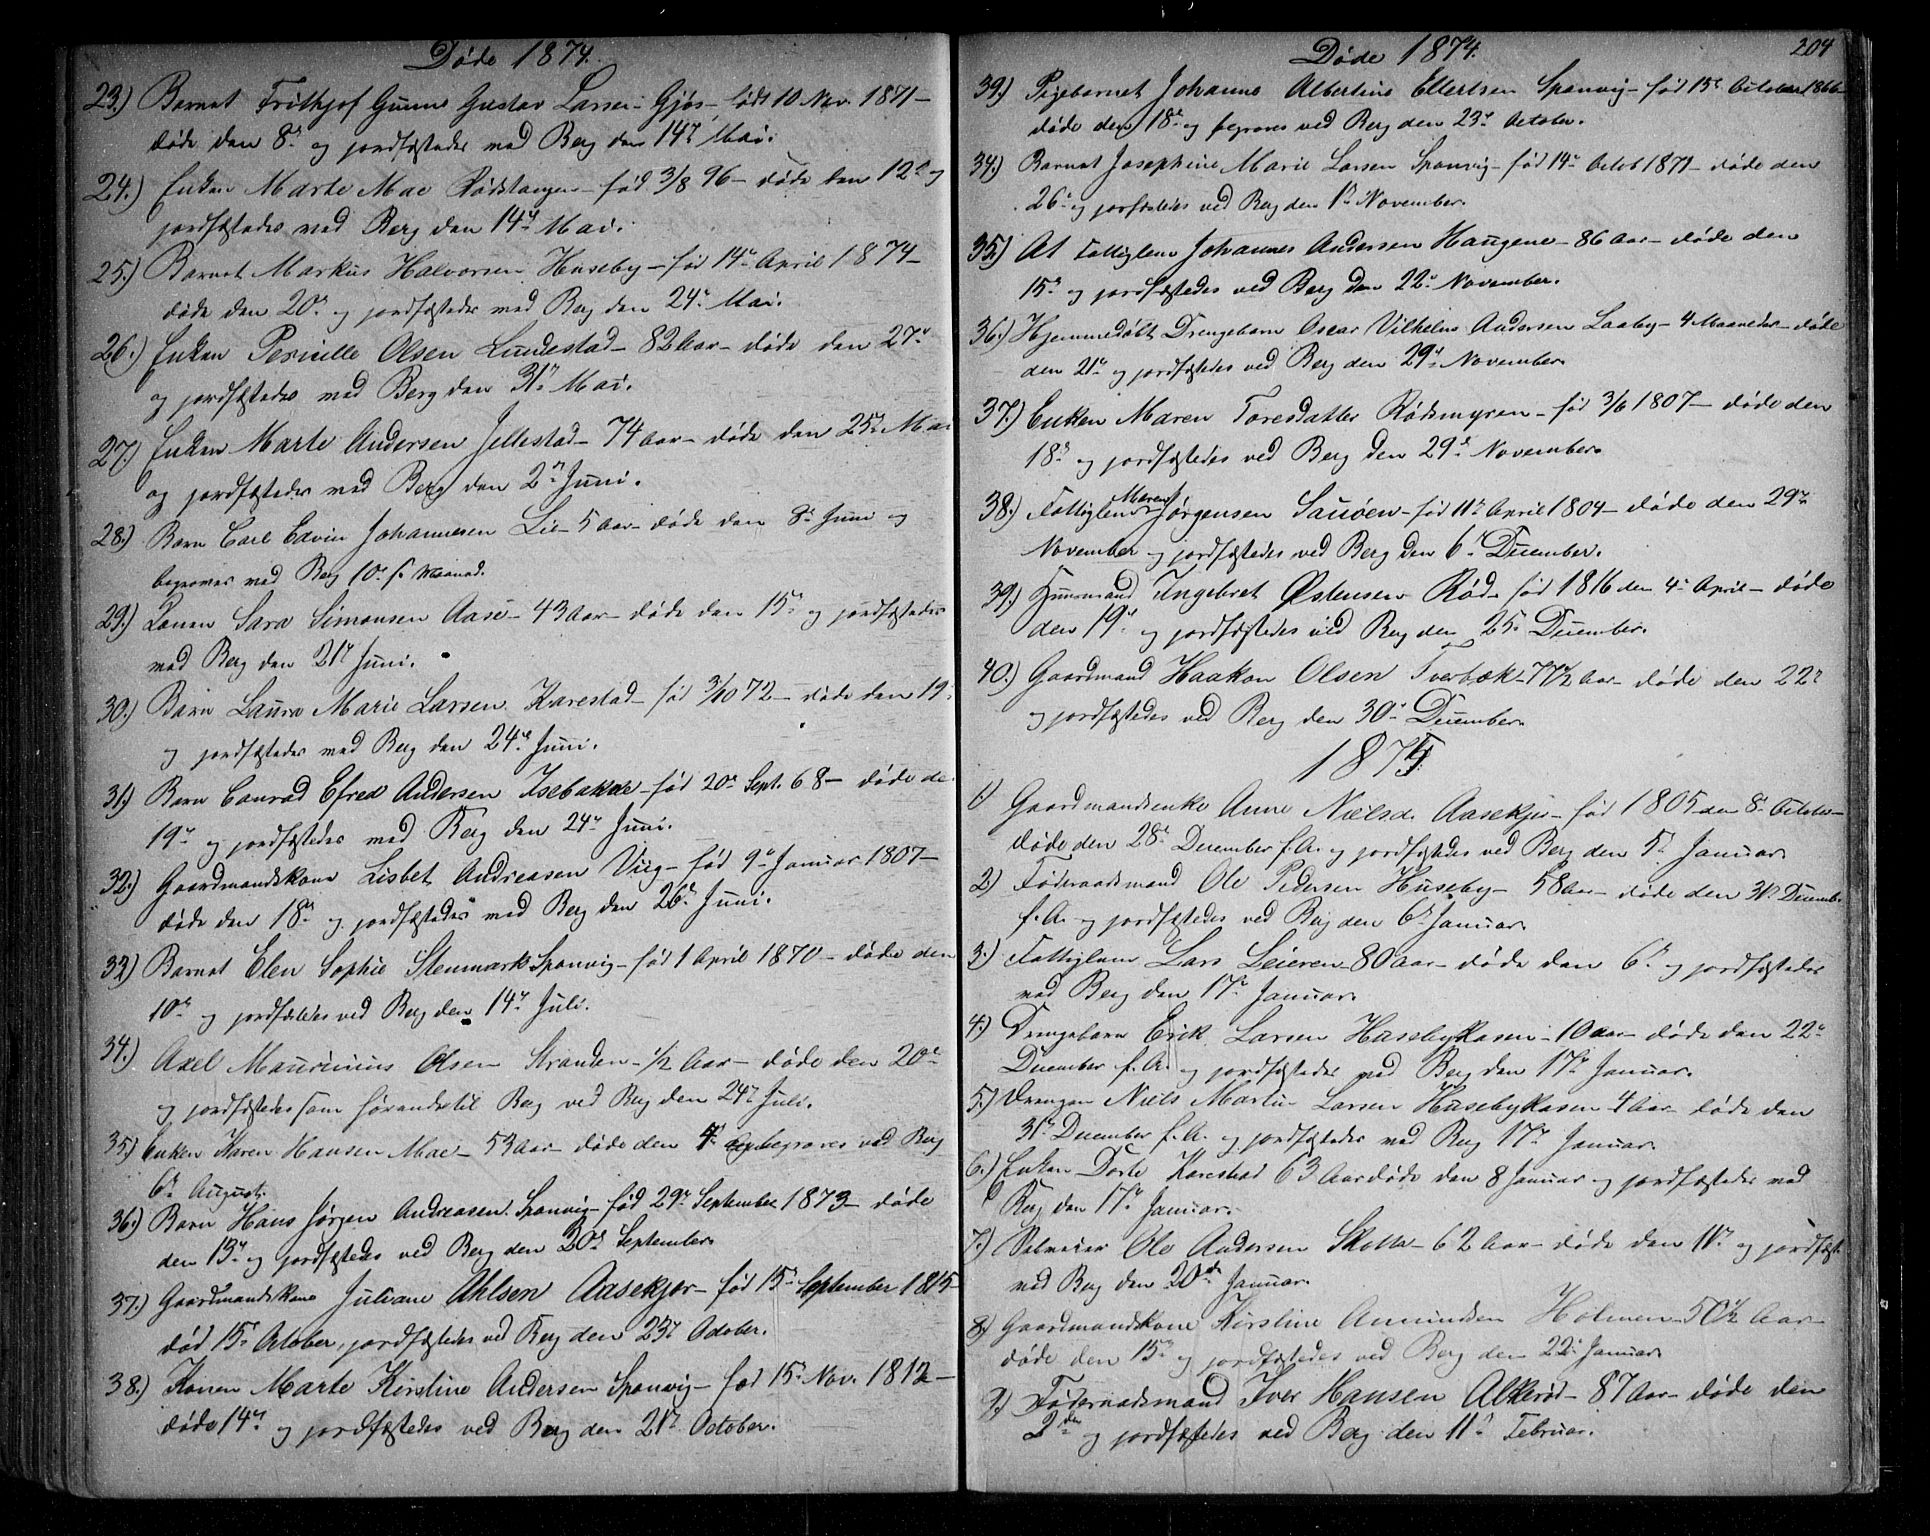 Døde 1874.
23.) Barnet Frithjof Gunne Gustav Larsen Gjøs født 10 Nov. 1871 –
døde den 8de og jordfæstedes ved Berg den 14de Mai.
24.) Enken Marte Moe Rødstangen – fød 3/8 96 – døde den 12te og
jordfæstedes ved Berg den 14de Mai.
25.) Barnet Markus Halvorsen Huseby – fød 14de April 1874 –
døde den 20de og jordfæstedes ved Berg den 24de Mai.
26.) Enken Pernille Olsen Lundestad – 82 Aar – døde den 27de
og jordfæstedes ved Berg den 31te Mai.
27.) Enken Marte Andersen Jellestad – 74 Aar – døde den 25de Mai
og jordfæstedes ved Berg den 2den Juni.
28.) Barn Carl Edvin Johannesen Lie – 5 Aar – døde den 8de Juni og
begraves ved Berg 10de s. Maaned.
29.) Konen Sara Simonsen Aase – 43 Aar – døde den 15de og jordfæstedes
ved Berg den 21de Juni.
30.) Barn Laura Marie Larsen Karestad – fød 3/10 72 – døde den 19de
og jordfæstedes ved Berg den 24de Juni.
31.) Barn Conrad Efred Andersen Isebakke – fød 20de Sept. 68 – døde den
19de og jordfæstedes ved Berg den 24de Juni.
32.) Gaardmandskone Lisbet Andreasen Viig – fød 9de Januar 1807 –
døde den 18de og jordfæstedes ved Berg den 26de Juni.
33.) Barnet Elen Sophie Stenmark Sponvig – fød 1 April 1870 – døde den
10de og jordfæstedes ved Berg den 14de Juli.
34.) Axel Maurinius Olsen Stranden – 1/2 Aar – døde den 20de
og jordfæstedes som hørende til Berg ved Berg den 24de Juli.
35.) Enken Karen Hansen Moe – 53 Aar – døde den 4de og begraves ved Berg
6te August.
36.) Barn Hans Jørgen Andreasen Sponvig – fød 29de September 1873 – døde
den 13de og jordfæstedes ved Berg den 20de September.
37.) Gaardmandskone Juliane Ahlsen Aasekjær – fød 15de September 1815 –
død 15de October, jordfæstedes ved Berg den 23de October.
38.) Konen Marte Kirstine Andersen Sponvig – fød 15de Nov. 1812 –
døde 14de og jordfæstedes ved Berg den 21de October.
Døde 1874. 204
39.) Pigebarnet Johanne Albertine Ellertsen Sponvig – fød 15de October 1866 –
døde den 18de og begraves ved Berg den 23de October.
34.) Barnet Josephine Marie Larsen Sponvig – fød 14de Octob 1871 – døde den
26de og jordfæstedes ved Berg den 1ste November.
35.) At Fattiglem Johannes Andersen Haugene – 86 Aar – døde den
15de og jordfæstedes ved Berg den 22de November.
36.) Hjemmedøbt Drengebarn Oscar Vilhelm Andersen Laaby – 4 Maaneder – døde
den 21de og jordfæstedes ved Berg den 29de November.
37.) Enken Maren Toresdatter Rødsmyren – fød 3/6 1807 – døde den
18de og jordfæstedes ved Berg den 29de November.
38.) Fattiglem Maren Jørgensen Sauøen – fød 11te April 1804 – døde den 29de
November og jordfæstedes ved Berg den 6te December.
39.) Huusmand Ingebret Østensen Rød – fød 1816 den 4de April – døde
den 19de og jordfæstedes ved Berg den 25de December.
40.) Gaardmand Haakon Olsen Tverbæk – 77 1/2 Aar – døde den 22de
og jordfæstedes ved Berg den 30te December.
1875
1.) Gaardmandsenke Anne Nielsd. Aasekjær – fød 1805 den 8de October –
døde den 28de December f. A. og jordfæstedes ved Berg den 5te Januar.
2.) Føderaadsmand Ole Pedersen Huseby – 58 Aar – døde den 31te Decemb.
f. A. og jordfæstedes ved Berg den 6te Januar.
3.) Fattiglem Lars Leieren 80 Aar – døde den 6te og jordfæstedes
ved Berg den 17de Januar.
4.) Drengebarn Erik Larsen Husebykasen – 10 Aar – døde den 22de
December f. A. og jordfæstedes ved Berg den 17de Januar.
5.) Drengen Niels Martin Larsen Husebykasen 4 Aar – døde den
31te December f. A. og jordfæstedes ved Berg 17de Januar.
6.) Enken Dorte Karestad 63 Aar døde den 8 Januar og jordfæstedes ved
Berg den 17de Januar.
7.) Selveier Ole Andersen Skotte – 62 Aar – døde den 11te og jordfæst.
ved Berg den 20de Januar.
8.) Gaardmandskone Kirstine Amundsen Holmen – 50 1/2 Aar –
døde den 15de og jordfæstedes ved Berg den 22de Januar.
9.) Føderaadsmand Iver Hansen Alkerød – 87 Aar – døde den
2den og jordfæstedes ved Berg den 11te Februar.